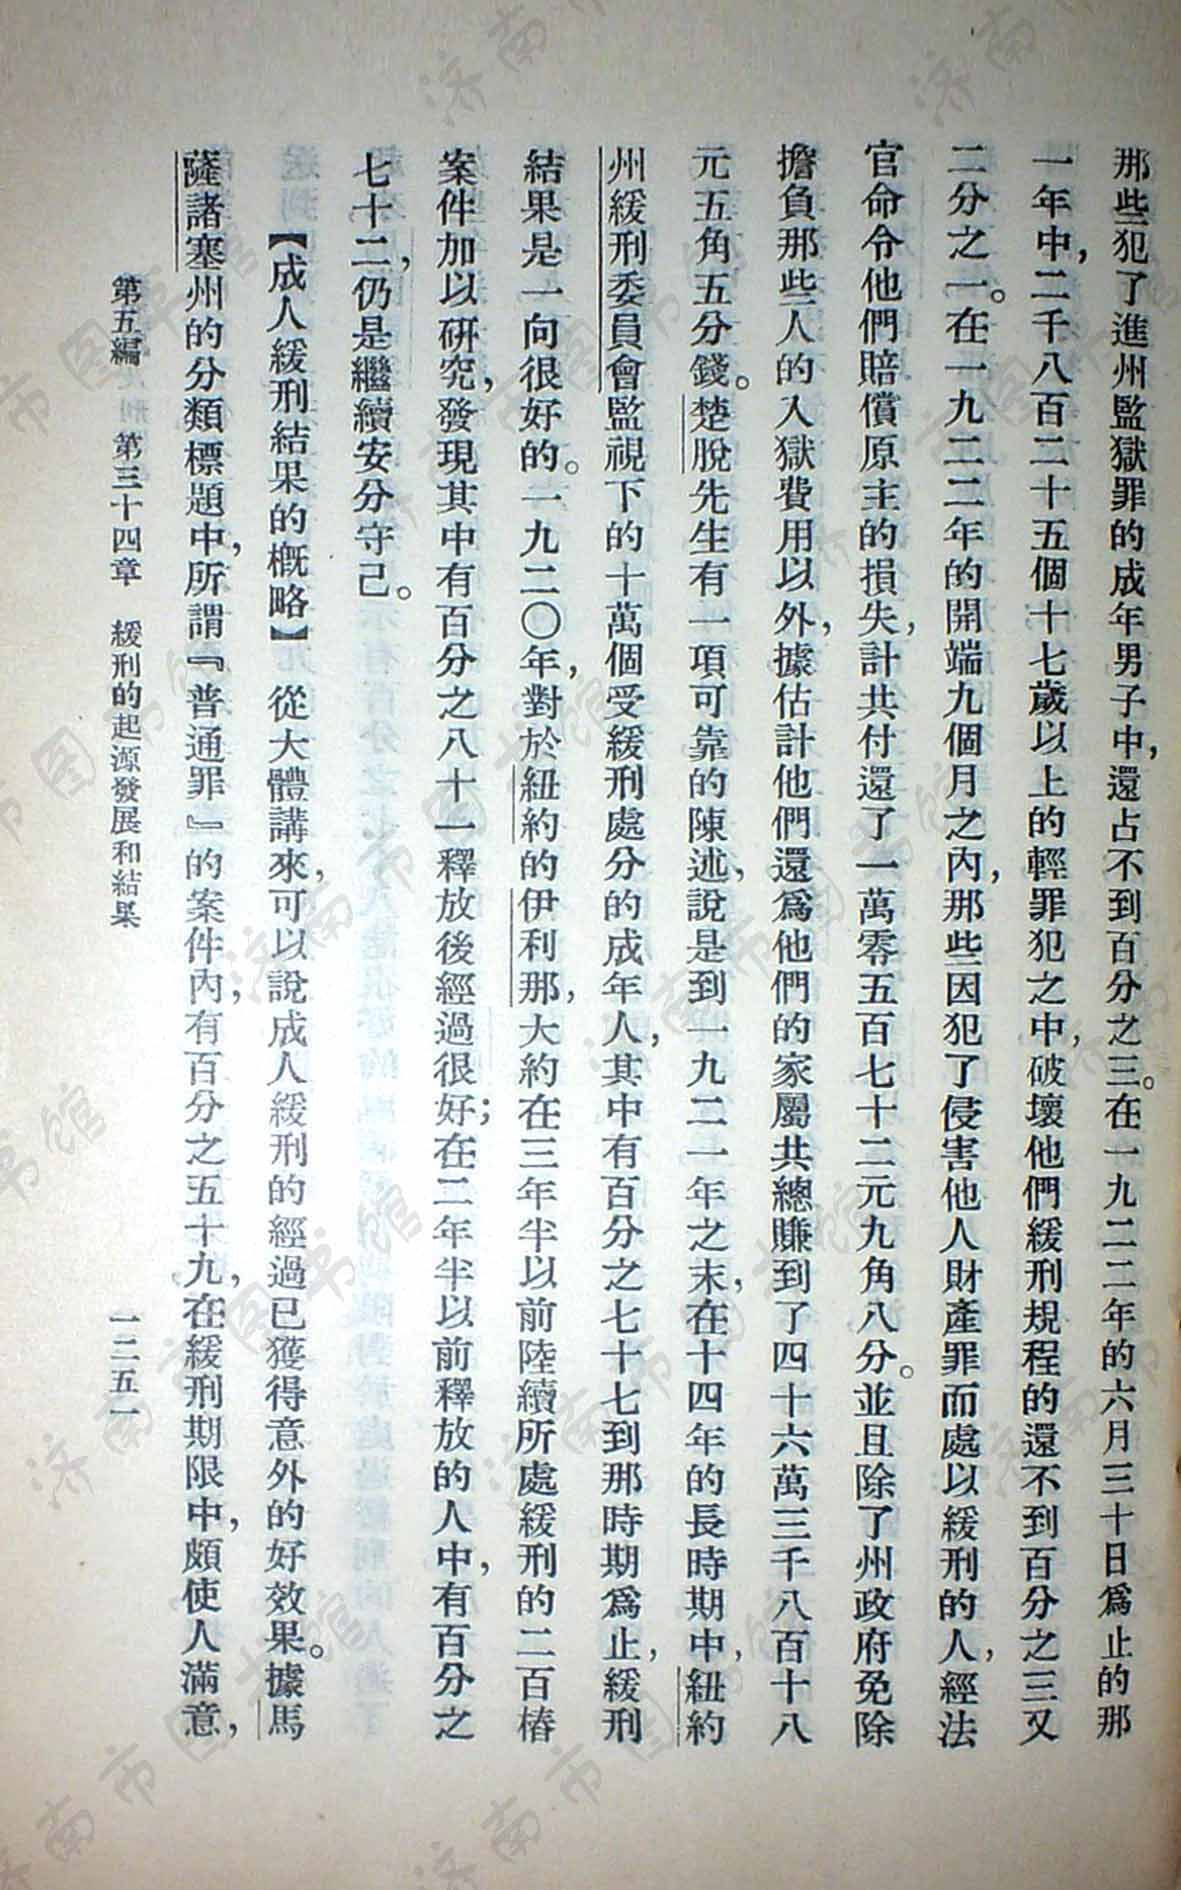 那些犯了進州監獄罪的成年男子中，還占不到百分之三。在一九二二年的六月三十日爲止的那
一年中，二千八百二十五個十七歲以上的輕罪犯之中，破壞他們緩刑規程的還不到百分之三又
二分之一。在一九二二年的開端九個月之內，那些因犯了侵害他人財產罪而處以緩刑的人，經法
官命令他們賠償原主的損失，計共付還了一萬零五百七十二元九角八分。並且除了州政府免除
擔負那些人的入獄費用以外，據估計他們還爲他們的家屬共總賺到了四十六萬三千八百十八
元五角五分錢。楚脫先生有一項可靠的陳述，說是到一九二一年之末，在十四年的長時期中，紐約
州緩刑委員會監視下的十萬個受緩刑處分的成年人，其中有百分之七十七到那時期爲止，緩刑
結果是一向很好的。一九二〇年，對於紐約的伊利那，大約在三年半以前陸續所處緩刑的二百樁
案件加以研究，發現其中有百分之八十一釋放後經過很好；在二年半以前釋放的人中，有百分之
七十二，仍是繼續安分守己。
【成人緩刑結果的概略】從大體講來，可以說成人緩刑的經過已獲得意外的好效果。據馬
薩諸塞州的分類標題中，所謂『普通罪』的案件內，有百分之五十九，在緩刑期限中，頗使人滿意，
第五編 第三十四章 緩刑的起源發展和結果
一二五一
济南市图书馆